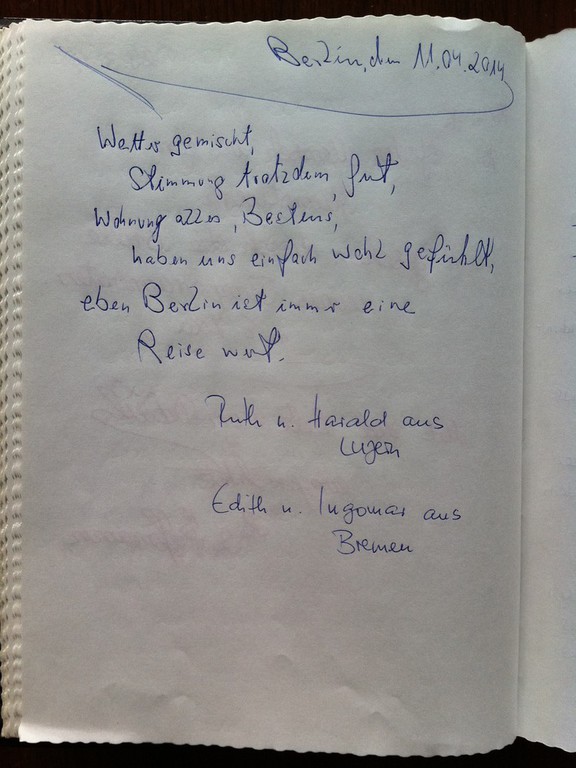 Berlin, den 11.04.2014
Wetter gemischt,
Stimmung trotzdem gut,
Wohnung alles Bestens,
haben uns einfach wohl gefühlt,
eben Berlin ist immer eine
Reise wert.
Ruth u. Harald aus
Luzern
Edith u. Ingomar aus
Bremen